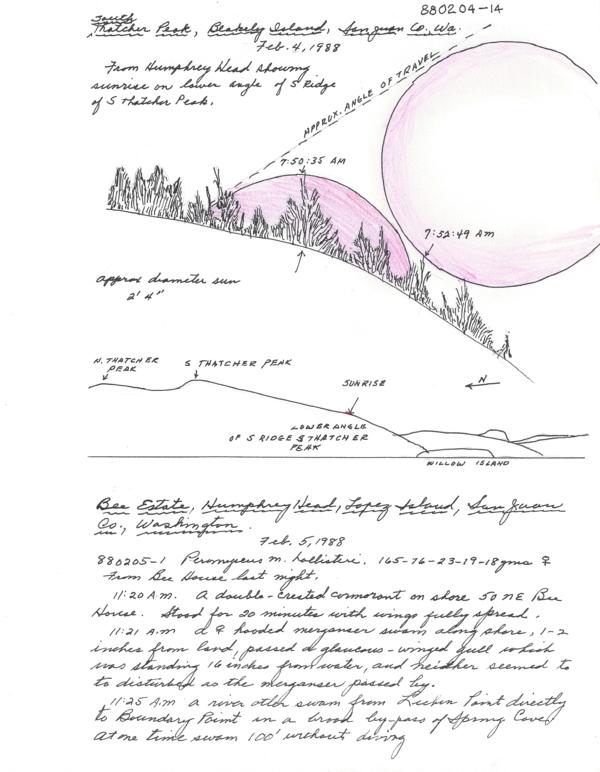 880204-14
South
Thatcher Peak, Blakely Island, San Juan Co., Wa.
Feb. 4, 1988
From Humphrey Head showing
sunrise on lower angle of S Ridge
of S Thatcher Peak.
APPROX. ANGLE OF TRAVEL
7:50:35 AM
7:52:49 AM
approx diameter sun
2' 4"
N. THATCHER
PEAK
S THATCHER PEAK
SUNRISE
N
LOWER ANGLE
OF S RIDGE S THATCHER
PEAK
WILLOW ISLAND
Bee Estate, Humphrey Head, Lopez Island, San Juan
Co., Washington.
Feb. 5, 1988
880205-1 Peromyscus m. hollisteri. 165-76-23-19-18gms ♀
From Bee House last night.
11:20 A.M. A double-crested cormorant on shore 50 NE Bee
House. Stood for 20 minutes with wings fully spread.
11:21 A.M a ♀ hooded merganser swam along shore, 1-2
inches from land, passed a glaucous-winged gull which
was standing 16 inches from water, and neither seemed to
to disturbed as the merganser passed by.
11:25 A.M a river otter swam from Point directly
to Boundary Point in a broad by-pass of Spring Cove
At one time swam 100' without diving